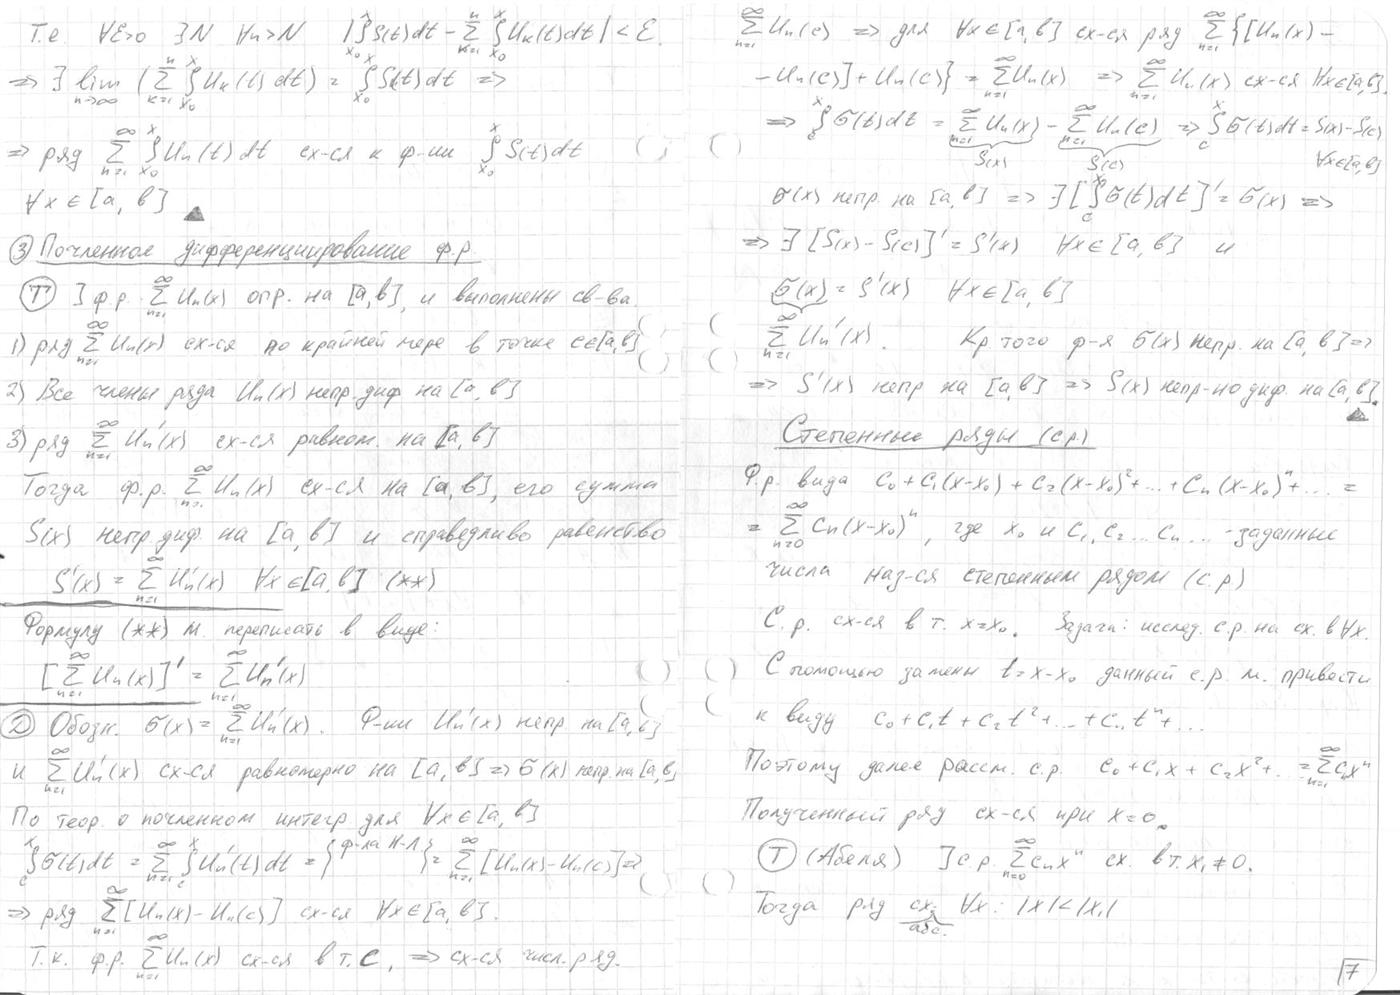 Т.е. ∀ε>0 ∃N ∀n>N |∫_{x₀}^{x} S(t)dt - ∑_{k=1}^{n} ∫_{x₀}^{x} U_k(t)dt| < ε.
=> ∃ lim_{n→∞} (∑_{k=1}^{n} ∫_{x₀}^{x} U_k(t)dt) = ∫_{x₀}^{x} S(t)dt =>
=> ряд ∑_{n=1}^{∞} ∫_{x₀}^{x} U_n(t)dt сх-ся к ф-ии ∫_{x₀}^{x} S(t)dt
∀x∈[a,b] ▲
③ Почленное дифференцирование ф.р.
Ⓣ ] ф.р. ∑_{n=1}^{∞} U_n(x) опр. на [a,b], и выполнены св-ва.
1) ряд ∑_{n=1}^{∞} U_n(x) сх-ся по крайней мере в точке c∈[a,b]
2) Все члены ряда U_n(x) непр. диф на [a,b]
3) ряд ∑_{n=1}^{∞} U_n'(x) сх-ся равном. на [a,b]
Тогда ф.р. ∑_{n=1}^{∞} U_n(x) сх-ся на [a,b], его сумма
S(x) непр. диф. на [a,b] и справедливо равенство
S'(x) = ∑_{n=1}^{∞} U_n'(x) ∀x∈[a,b] (**)
Формулу (**) м. переписать в виде:
[∑_{n=1}^{∞} U_n(x)]' = ∑_{n=1}^{∞} U_n'(x)
Ⓓ Обозн. σ(x) = ∑_{n=1}^{∞} U_n'(x). Ф-ии U_n'(x) непр. на [a,b]
и ∑_{n=1}^{∞} U_n'(x) сх-ся равномерно на [a,b] => σ(x) непр. на [a,b]
По теор. о почленном интегр. для ∀x∈[a,b]
∫_{c}^{x} σ(t)dt = ∑_{n=1}^{∞} ∫_{c}^{x} U_n'(t)dt = {ф-ла Н-Л} = ∑_{n=1}^{∞} [U_n(x)-U_n(c)] =>
=> ряд ∑_{n=1}^{∞} [U_n(x)-U_n(c)] сх-ся ∀x∈[a,b].
Т.к. ф.р. ∑_{n=1}^{∞} U_n(x) сх-ся в т. c, => сх-ся числ. ряд.
∑_{n=1}^{∞} U_n(c) => для ∀x∈[a,b] сх-ся ряд ∑_{n=1}^{∞} {[U_n(x) -
- U_n(c)] + U_n(c)} = ∑_{n=1}^{∞} U_n(x) => ∑_{n=1}^{∞} U_n(x) сх-ся ∀x∈[a,b].
=> ∫_{c}^{x} σ(t)dt = ∑_{n=1}^{∞} U_n(x) - ∑_{n=1}^{∞} U_n(c) => ∫_{c}^{x} σ(t)dt = S(x)-S(c)
S(x) S(c) ∀x∈[a,b]
σ(x) непр. на [a,b] => ∃ [∫_{c}^{x} σ(t)dt]' = σ(x) =>
=> ∃ [S(x)-S(c)]' = S'(x) ∀x∈[a,b] и
σ(x) = S'(x) ∀x∈[a,b]
∑_{n=1}^{∞} U_n'(x). Кр. того ф-я σ(x) непр. на [a,b] =>
=> S'(x) непр на [a,b] => S(x) непр-но диф. на [a,b]. ▲
Степенные ряды (с.р.)
Ф.р. вида c₀ + c₁(x-x₀) + c₂(x-x₀)² + ... + c_n(x-x₀)ⁿ + ... =
= ∑_{n=0}^{∞} c_n(x-x₀)ⁿ, где x₀ и c₁, c₂ ... c_n ... - заданные
числа наз-ся степенным рядом (с.р)
С.р. сх-ся в т. x=x₀. Задача: исслед. с.р. на сх. в ∀x.
С помощью замены t=x-x₀ данный с.р. м. привести
к виду c₀ + c₁t + c₂t² + ... + c_n tⁿ + ...
Поэтому далее рассм. с.р. c₀ + c₁x + c₂x² + ... = ∑_{n=1}^{∞} c_n xⁿ
Полученный ряд сх-ся при x=0.
Ⓣ (Абеля) ] с.р. ∑_{n=0}^{∞} c_n xⁿ сх. в т. x₁ ≠ 0.
Тогда ряд сх. ∀x: |x|<|x₁|
абс.
7